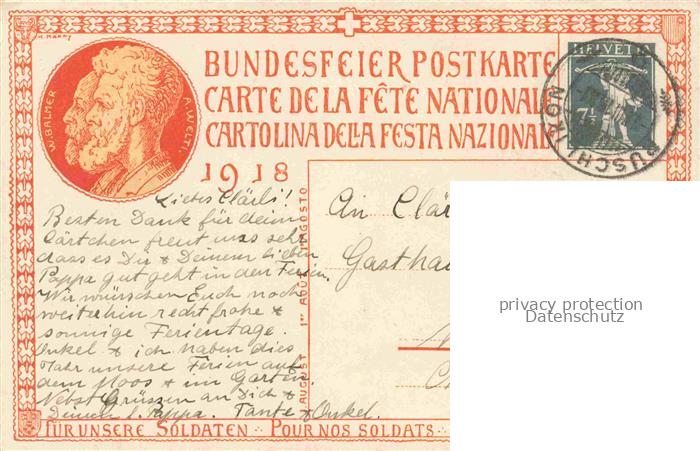 R. MÄRKT
BUNDESFEIER POSTKARTE
CARTE DE LA FÊTE NATIONAL
CARTOLINA DELLA FESTA NAZIONAL
1918
W. BALMER
A. WELTI
HELVETIA
7½
Liebes Clärli!
Besten Dank für deine
Kärtchen freut uns sehr
dass es Dir & Deinem lieben
Pappa gut geht in den Ferien.
Wir wünschen Euch noch
weiterhin recht frohe &
sonnige Ferientage.
Onkel & ich haben dies
Jahr unsere Ferien auf
dem Moos & im Garten.
Nebst Grüssen an Dich &
Deinen l. Pappa. Tante & Onkel.
AUGUST 1er AOÛT 1º AGOSTO
An Clär
Gasthau
privacy protection
Datenschutz
FÜR UNSERE SOLDATEN · POUR NOS SOLDATS